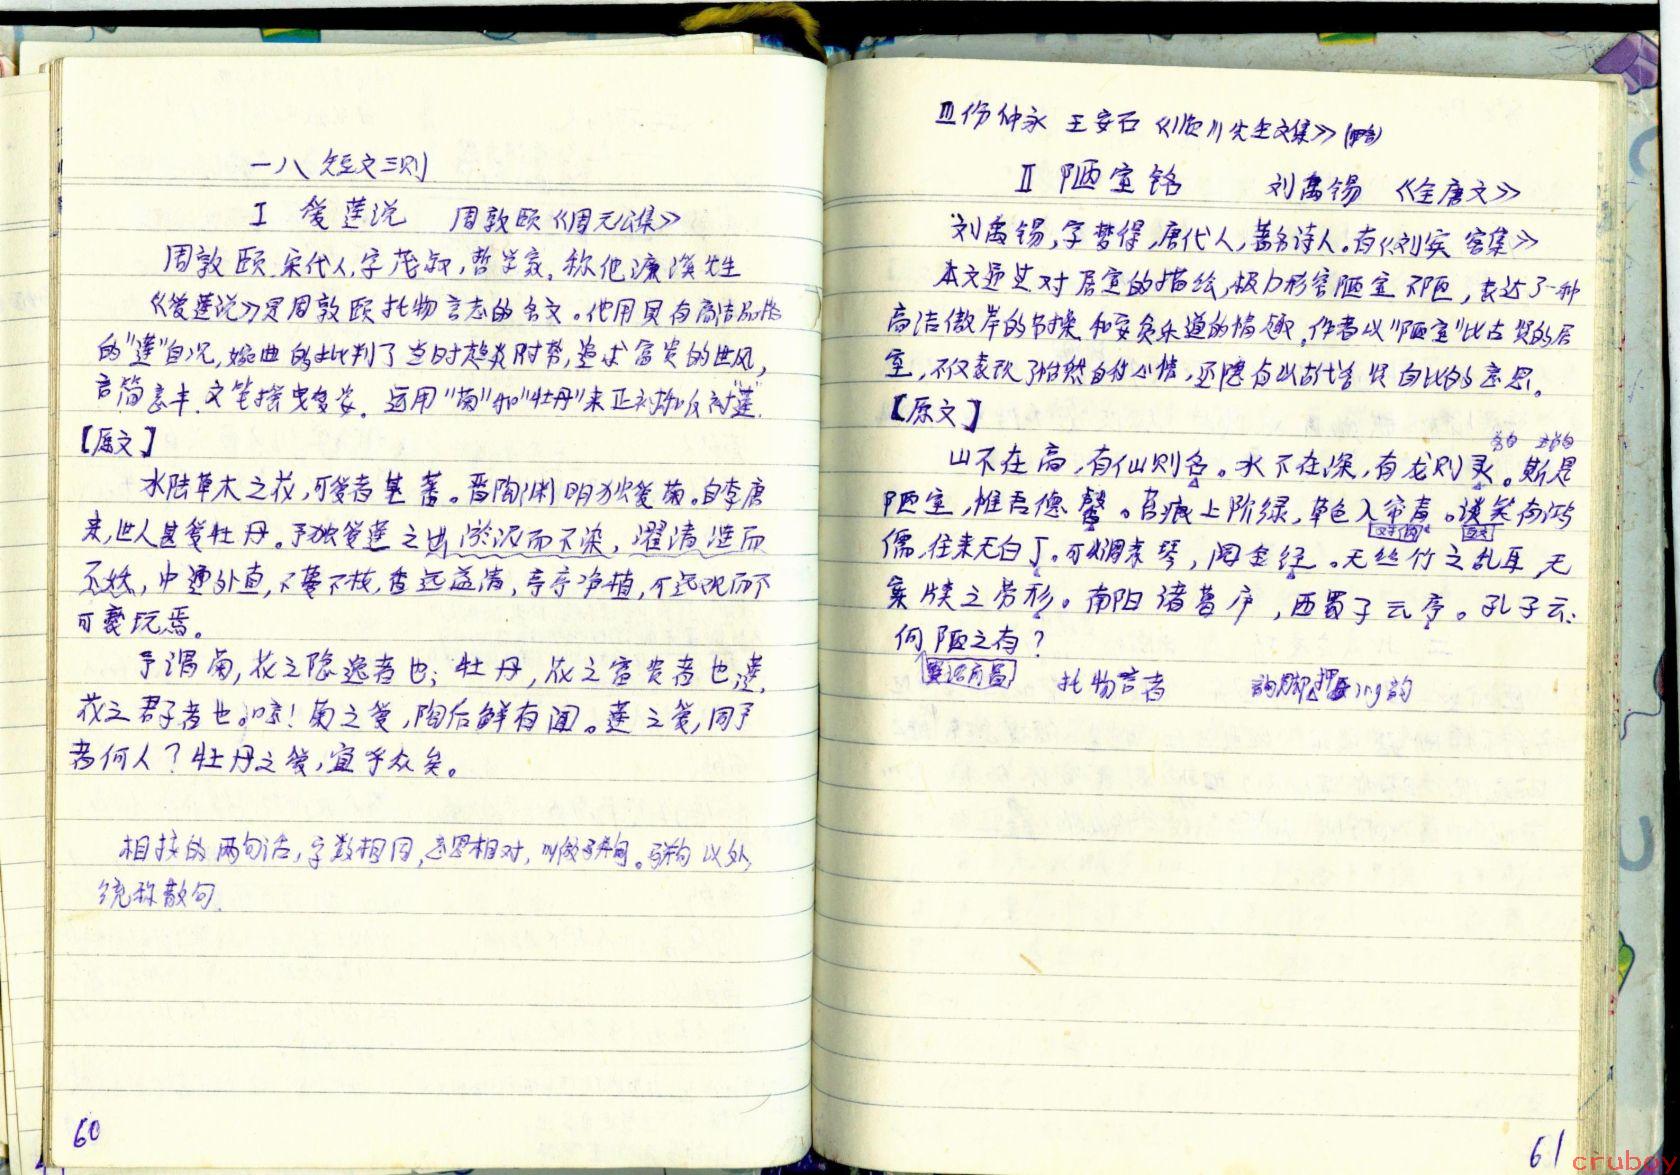 一八 短文三则
I 爱莲说 周敦颐《周元公集》
周敦颐,宋代人,字茂叔,哲学家,称他濂溪先生
《爱莲说》是周敦颐托物言志的名文。他用具有高洁品格
的"莲"自况,婉曲的批判了当时趋炎附势,追求富贵的世风,
言简意丰,文笔摇曳多姿. 运用"菊"和"牡丹"来正衬和反衬"莲".
【原文】
水陆草木之花,可爱者甚蕃。晋陶渊明独爱菊。自李唐
来,世人甚爱牡丹。予独爱莲之出淤泥而不染,濯清涟而
不妖,中通外直,不蔓不枝,香远益清,亭亭净植,可远观而不
可亵玩焉。
予谓菊,花之隐逸者也;牡丹,花之富贵者也;莲,
花之君子者也。噫!菊之爱,陶后鲜有闻。莲之爱,同予
者何人?牡丹之爱,宜乎众矣。
相接的两句话,字数相同,意思相对,叫做骈句。骈句以外,
统称散句.
60
III 伤仲永 王安石《临川先生文集》(略)
II 陋室铭 刘禹锡 《全唐文》
刘禹锡,字梦得,唐代人,著名诗人。有《刘宾客集》
本文通过对居室的描绘,极力形容陋室不陋,表达了一种
高洁傲岸的节操和安贫乐道的情趣.作者以"陋室"比古贤的居
室,不仅表现了怡然自得心情,还隐有以古代名贤自比的意思。
【原文】
山不在高,有仙则名。水不在深,有龙则灵。斯是
陋室,惟吾德馨。苔痕上阶绿,草色入帘青。谈笑有鸿
儒,往来无白丁。可以调素琴,阅金经。无丝竹之乱耳,无
案牍之劳形。南阳诸葛庐,西蜀子云亭。孔子云:
何陋之有?
托物言者 韵脚 押ing韵
61
cruboy